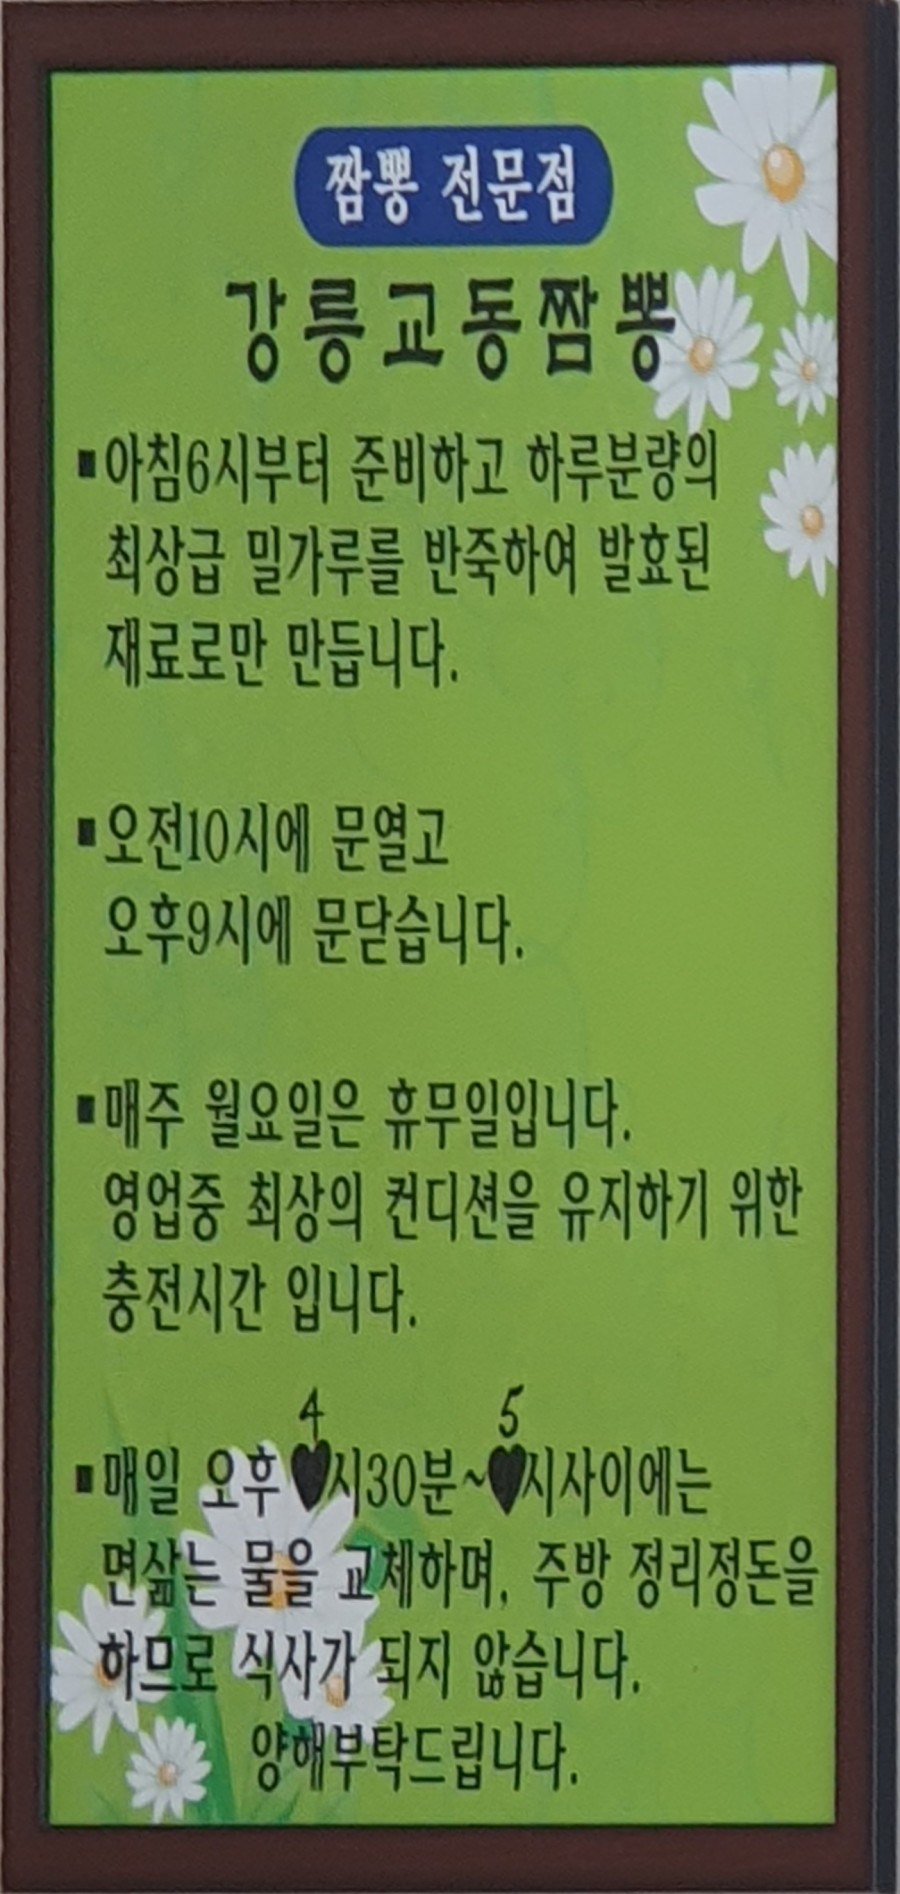 짬뽕 전문점
강릉교동짬뽕
▪아침6시부터 준비하고 하루분량의
최상급 밀가루를 반죽하여 발효된
재료로만 만듭니다.
▪오전10시에 문열고
오후9시에 문닫습니다.
▪매주 월요일은 휴무일입니다.
영업중 최상의 컨디션을 유지하기 위한
충전시간 입니다.
4 5
▪매일 오후 ♥시30분~♥시사이에는
면삶는 물을 교체하며, 주방 정리정돈을
하므로 식사가 되지 않습니다.
양해부탁드립니다.